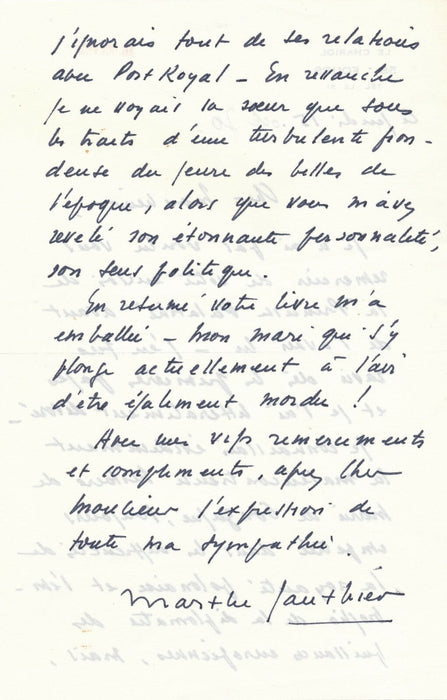 j'ignorais tout de ses relations
avec Port Royal – En revanche
je ne voyais la sœur que sous
les traits d'une turbulente fron-
deuse du genre des belles de
l'époque, alors que vous m'avez
révélé son étonnante personnalité,
son sens politique.
En résumé votre livre m'a
emballée – mon mari qui s'y
plonge actuellement à l'air
d'être également mordu !
Avec mes vifs remerciements
et compliments, agréez Cher
Monsieur l'expression de
toute ma sympathie.
Marthe Gauthier